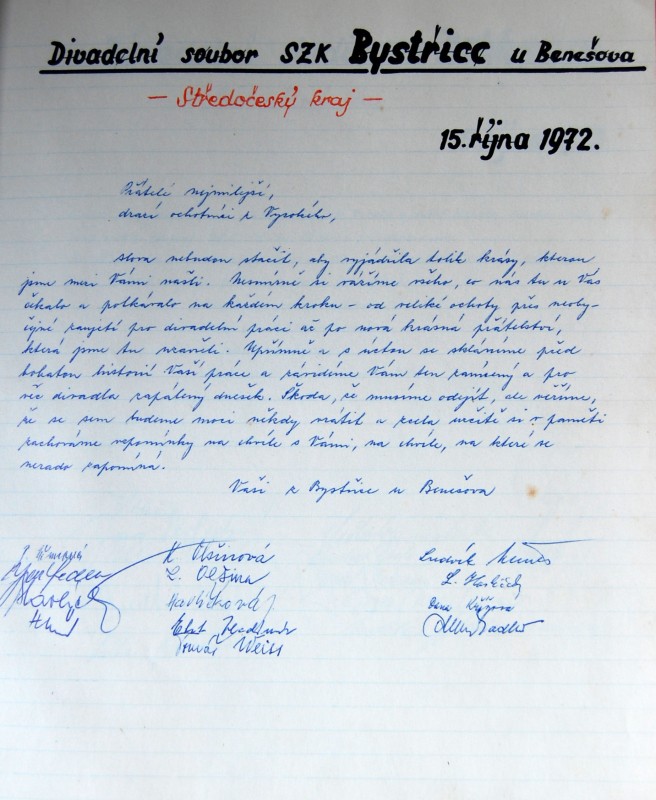 Divadelní soubor SZK Bystřice u Benešova
— Středočeský kraj —
15. října 1972.
Přátelé nejmilejší,
drazí ochotníci z Vysokého,
slova nebudou stačit, aby vyjádřila tolik krásy, kterou
jsme mezi Vámi našli. Nesmírně si vážíme všeho, co nás tu u Vás
čekalo a potkávalo na každém kroku – od veliké ochoty přes neoby-
čejné zaujetí pro divadelní práci až po nová krásná přátelství,
která jsme tu uzavřeli. Upřímně a s úctou se skláníme před
bohatou historií Vaší práce a závidíme Vám ten zanícený a pro
věc divadla zapálený dnešek. Škoda, že musíme odejít, ale věříme,
že se sem budeme moci někdy vrátit a zcela určitě si v paměti
zachováme vzpomínky na chvíle s Vámi, na chvíle, na které se
nerado zapomíná.
Vaši z Bystřice u Benešova
K. Olšinová
L. Olšina
Havlíčková
Tomáš Weiss
Ludvík